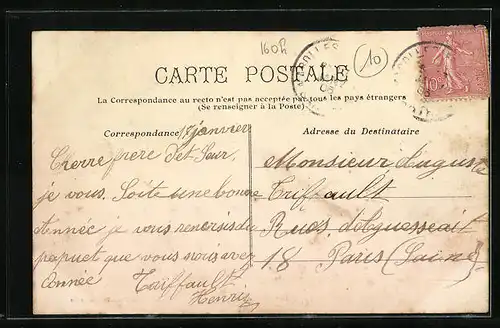 160h
10
CARTE POSTALE
La Correspondance au recto n'est pas acceptée par tous les pays étrangers
(Se renseigner à la Poste)
Correspondance 17 janvier
Adresse du Destinataire
Cherre frere et Seur,
je vous Soite une bonne
Année je vous remersis du
paquet que vous avez
donnée
Triffault
Henri
Monsieur Auguste
Triffault
Rues. d'Aguesseait
18 Paris (Saine)
10